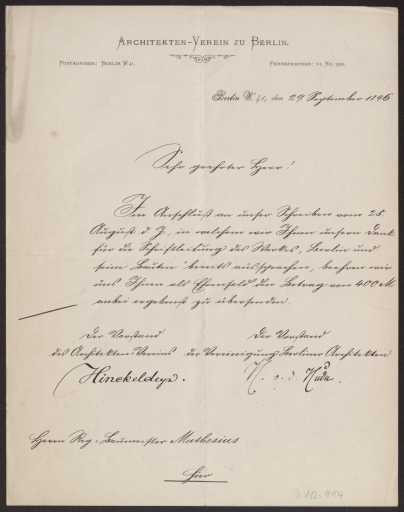 ARCHITEKTEN-VEREIN ZU BERLIN.
POSTADRESSE: BERLIN W.
FERNSPRECHER:
Berlin W. den 29 September 1896
Sehr geehrter Herr!
Im Anschluß an unser Schreiben vom 25
August d. J., in welchem wir Ihnen unsern Dank
für die Schriftleitung des Werkes, Berlin und
seine Bauten bereits aussprachen, beehren wir
uns Ihnen als Ehrensold den Betrag von 400 M
anbei ergebenst zu übersenden.
Der Vorstand
Der Vorstand
des Architekten-Vereins
der Vereinigung Berliner Architekten
Hinckeldeyn.
Herrn Reg.-Baumeister Muthesius
Hier